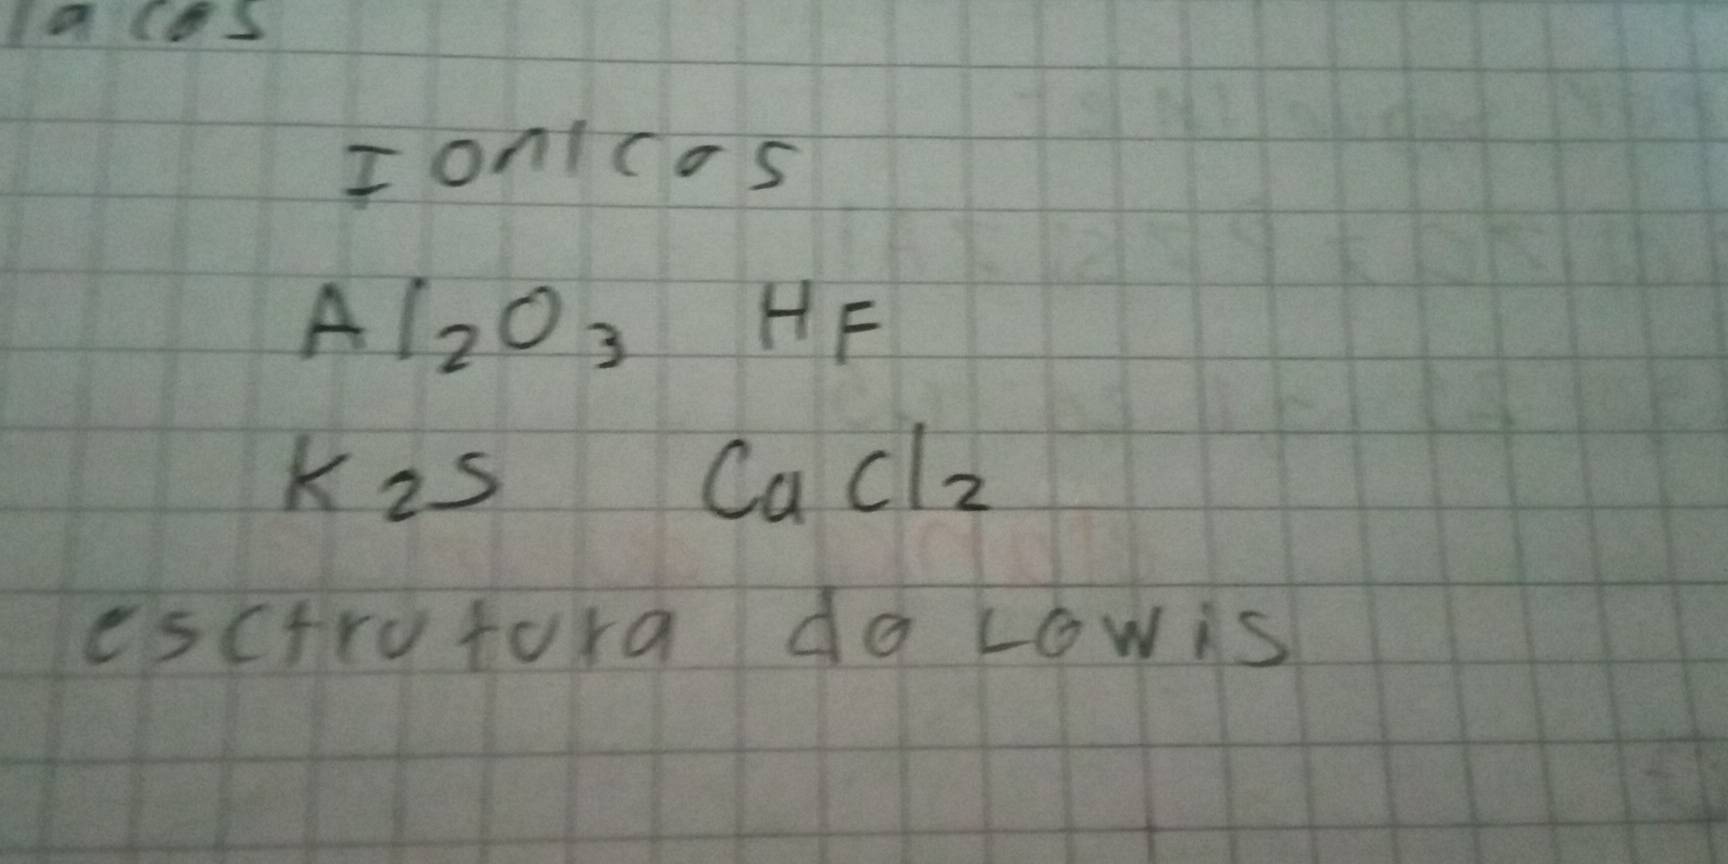 lacos
Ionicos
Al₂O₃ HF
K₂S CaCl₂
esctrutura do Lowis